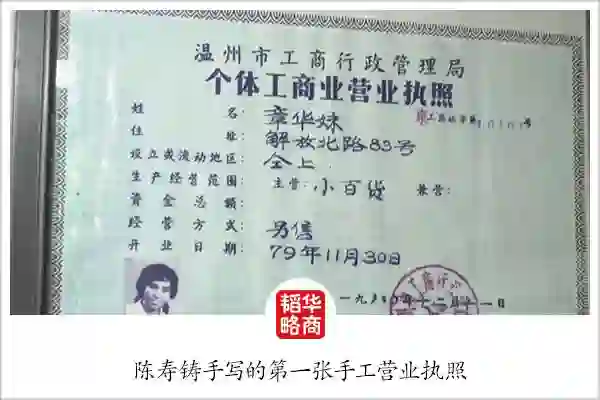 温州市工商行政管理局
个体工商业营业执照
姓 名: 章华妹
住 址: 解放北路83号
设立或流动地区: 仝上
生产经营范围: 主营: 小百货 兼营:
资金总额:
经营方式: 另售
开业日期: 79年11月30日
一九八〇年十二月十一日
韬略华商
陈寿铸手写的第一张手工营业执照